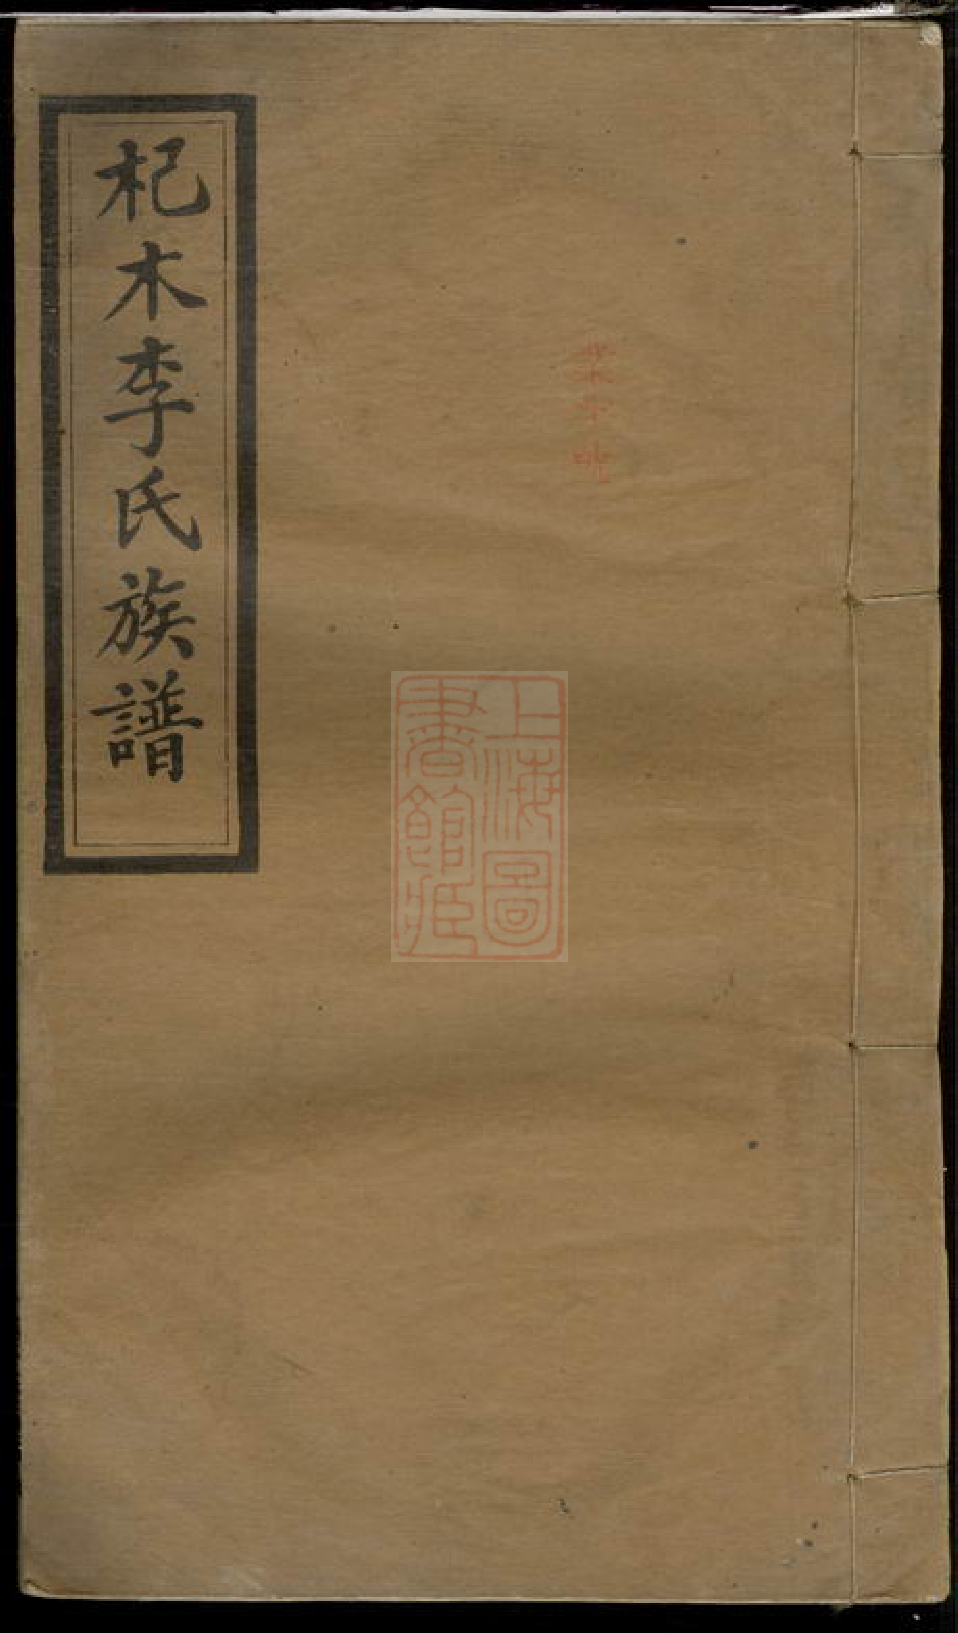 杞木李氏族譜
上海圖
書館藏